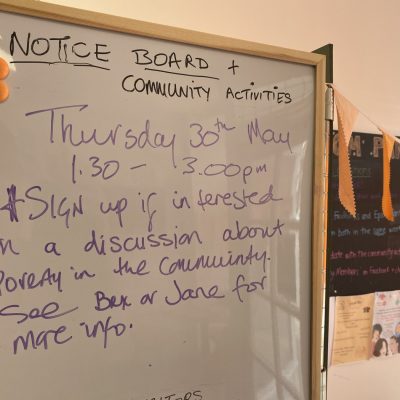 NOTICE BOARD +
COMMUNITY ACTIVITIES
Thursday 30th May
1.30 - 3.00pm
SIGN up if interested
in a discussion about
Poverty in the Commuinty.
See Bex or Jane for
more info.
and Ep
in both in the same week
date with the community
Members on Facebook